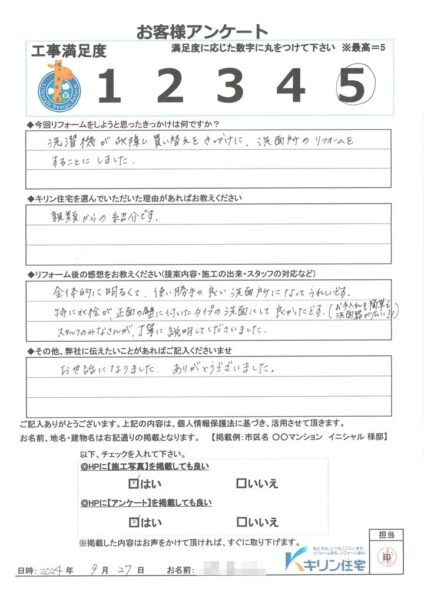 お客様アンケート
工事満足度 満足度に応じた数字に丸をつけて下さい ※最高＝5
1 2 3 4 5
◆今回リフォームをしようと思ったきっかけは何ですか？
洗濯機が故障し買い替えをきっかけに、洗面所のリフォームを
することにしました。
◆キリン住宅を選んでいただいた理由があればお教えください
親類からの紹介です。
◆リフォーム後の感想をお教えください（提案内容・施工の出来・スタッフの対応など）
全体的に明るくて、使い勝手の良い洗面所になってうれしいです。
特に水栓が、正面の壁に付いたタイプの洗面にして良かったです。（お手入れも簡単で
洗面器が広い!!）
スタッフのみなさんが、丁寧に説明してくださいました。
◆その他、弊社に伝えたいことがあればご記入くださいませ
お世話になりました。ありがとうございました。
ご記入ありがとうございます。上記の内容は、個人情報保護法に基づき、活用させて頂きます。
お名前、地名・建物名は右記通りの掲載となります。 【掲載例：市区名 〇〇マンション イニシャル 様邸】
以下、チェックを入れて下さい。
◎HPに【施工写真】を掲載しても良い
☑はい □いいえ
◎HPに【アンケート】を掲載しても良い
☑はい □いいえ
※掲載した内容はお声をかけて頂ければ、すぐに取り下げます。
担当
キリン住宅
日時：2024 年 9 月 27 日 お名前：